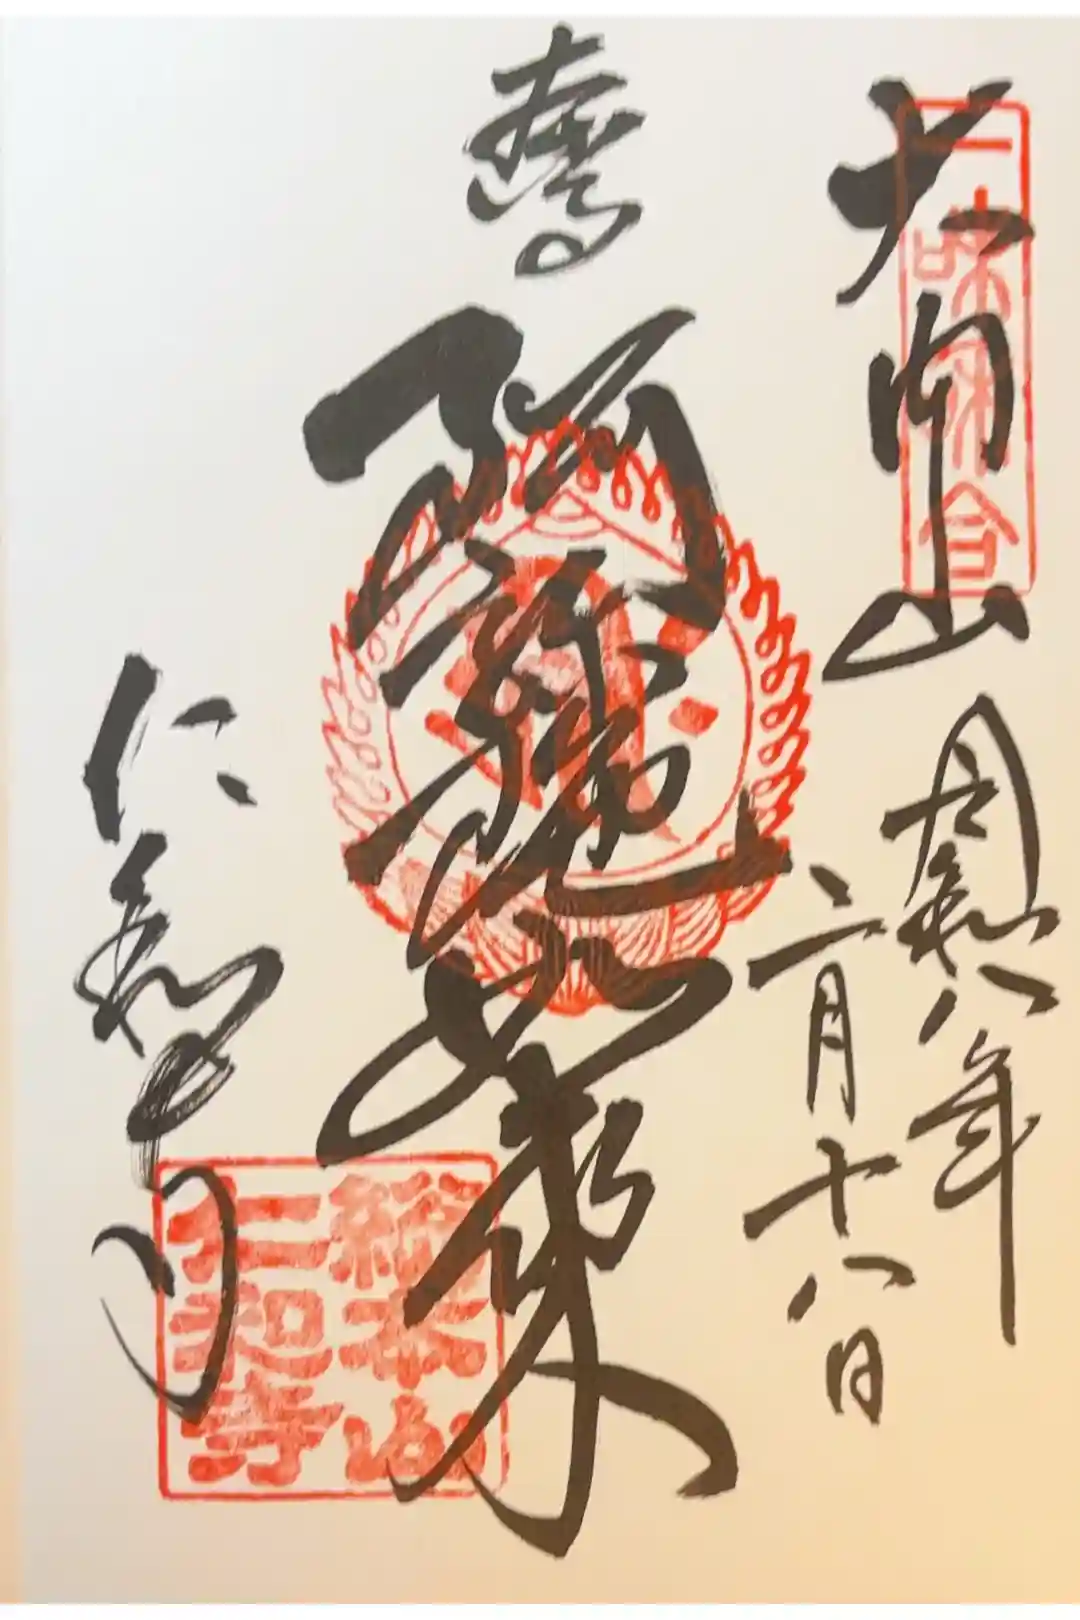 大内山
一味和合
八年
二月十八日
阿弥陀如来
仁和
総本山
仁和寺